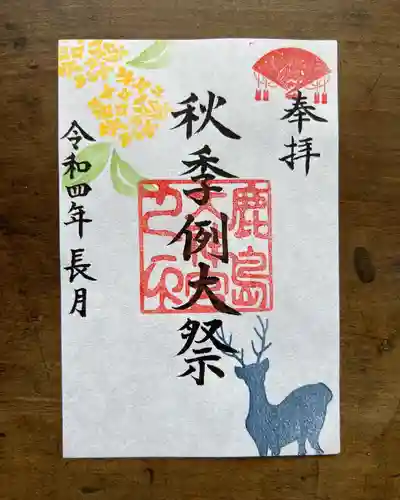 奉拝
秋季例大祭
鹿島
令和四年 長月